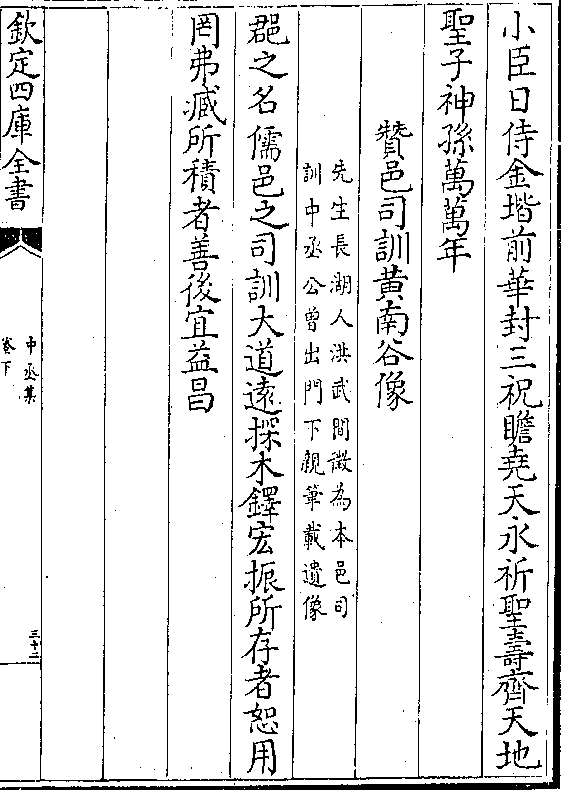 小臣日侍金堦前華封三祝瞻堯天永祈聖壽齊天地
聖子神孫萬萬年
贊邑司訓黄南谷像
先生長湖人洪武間徵為本邑司
訓中丞公曾出門下親筆載遺像
郡之名儒邑之司訓大道逺探木鐸宏振所存者恕用
罔弗臧所積者善後宜益昌
欽定四庫全書
中丞集
卷下
三十二